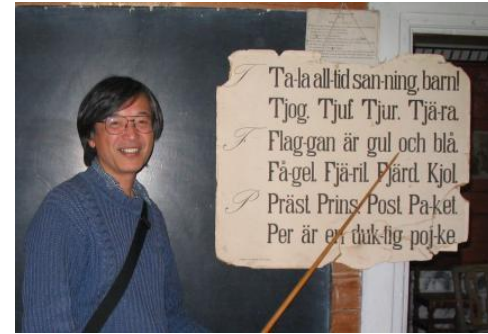 T Ta-la all-tid san-ning, barn!
Tjog. Tjuf. Tjur. Tjä-ra.
F Flag-gan är gul och blå.
Få-gel. Fjä-ril. Fjärd. Kjol.
P Präst. Prins. Post. Pa-ket.
Per är en duk-tig poj-ke.